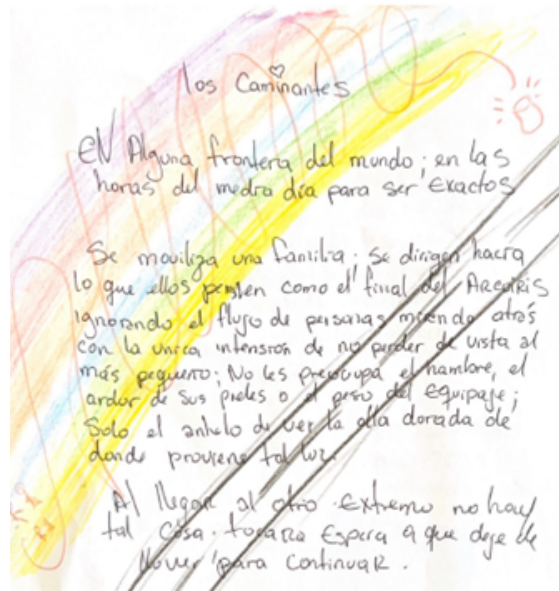 los Caminantes
EN Alguna frontera del mundo; en las
horas del medio día para ser Exactos
Se moviliza una familia; se dirigen hacia
lo que ellos perciben como el final del Arcoiris
ignorando el flujo de personas mirando atrás
con la unica intension de no perder de vista al
más pequeño; No les preocupa el hambre, el
ardor de sus pieles o el peso del Equipaje;
Solo el anhelo de ver la olla dorada de
donde proviene tal luz.
Al llegar al otro Extremo no hay
tal cosa. tocara Espera a que deje de
llover para continuar.